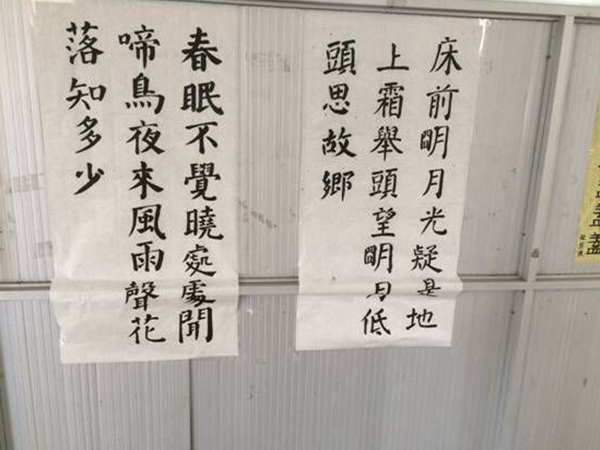 床前明月光疑是地
上霜舉頭望明月低
頭思故鄉
春眠不覺曉處處聞
啼鳥夜來風雨聲花
落知多少